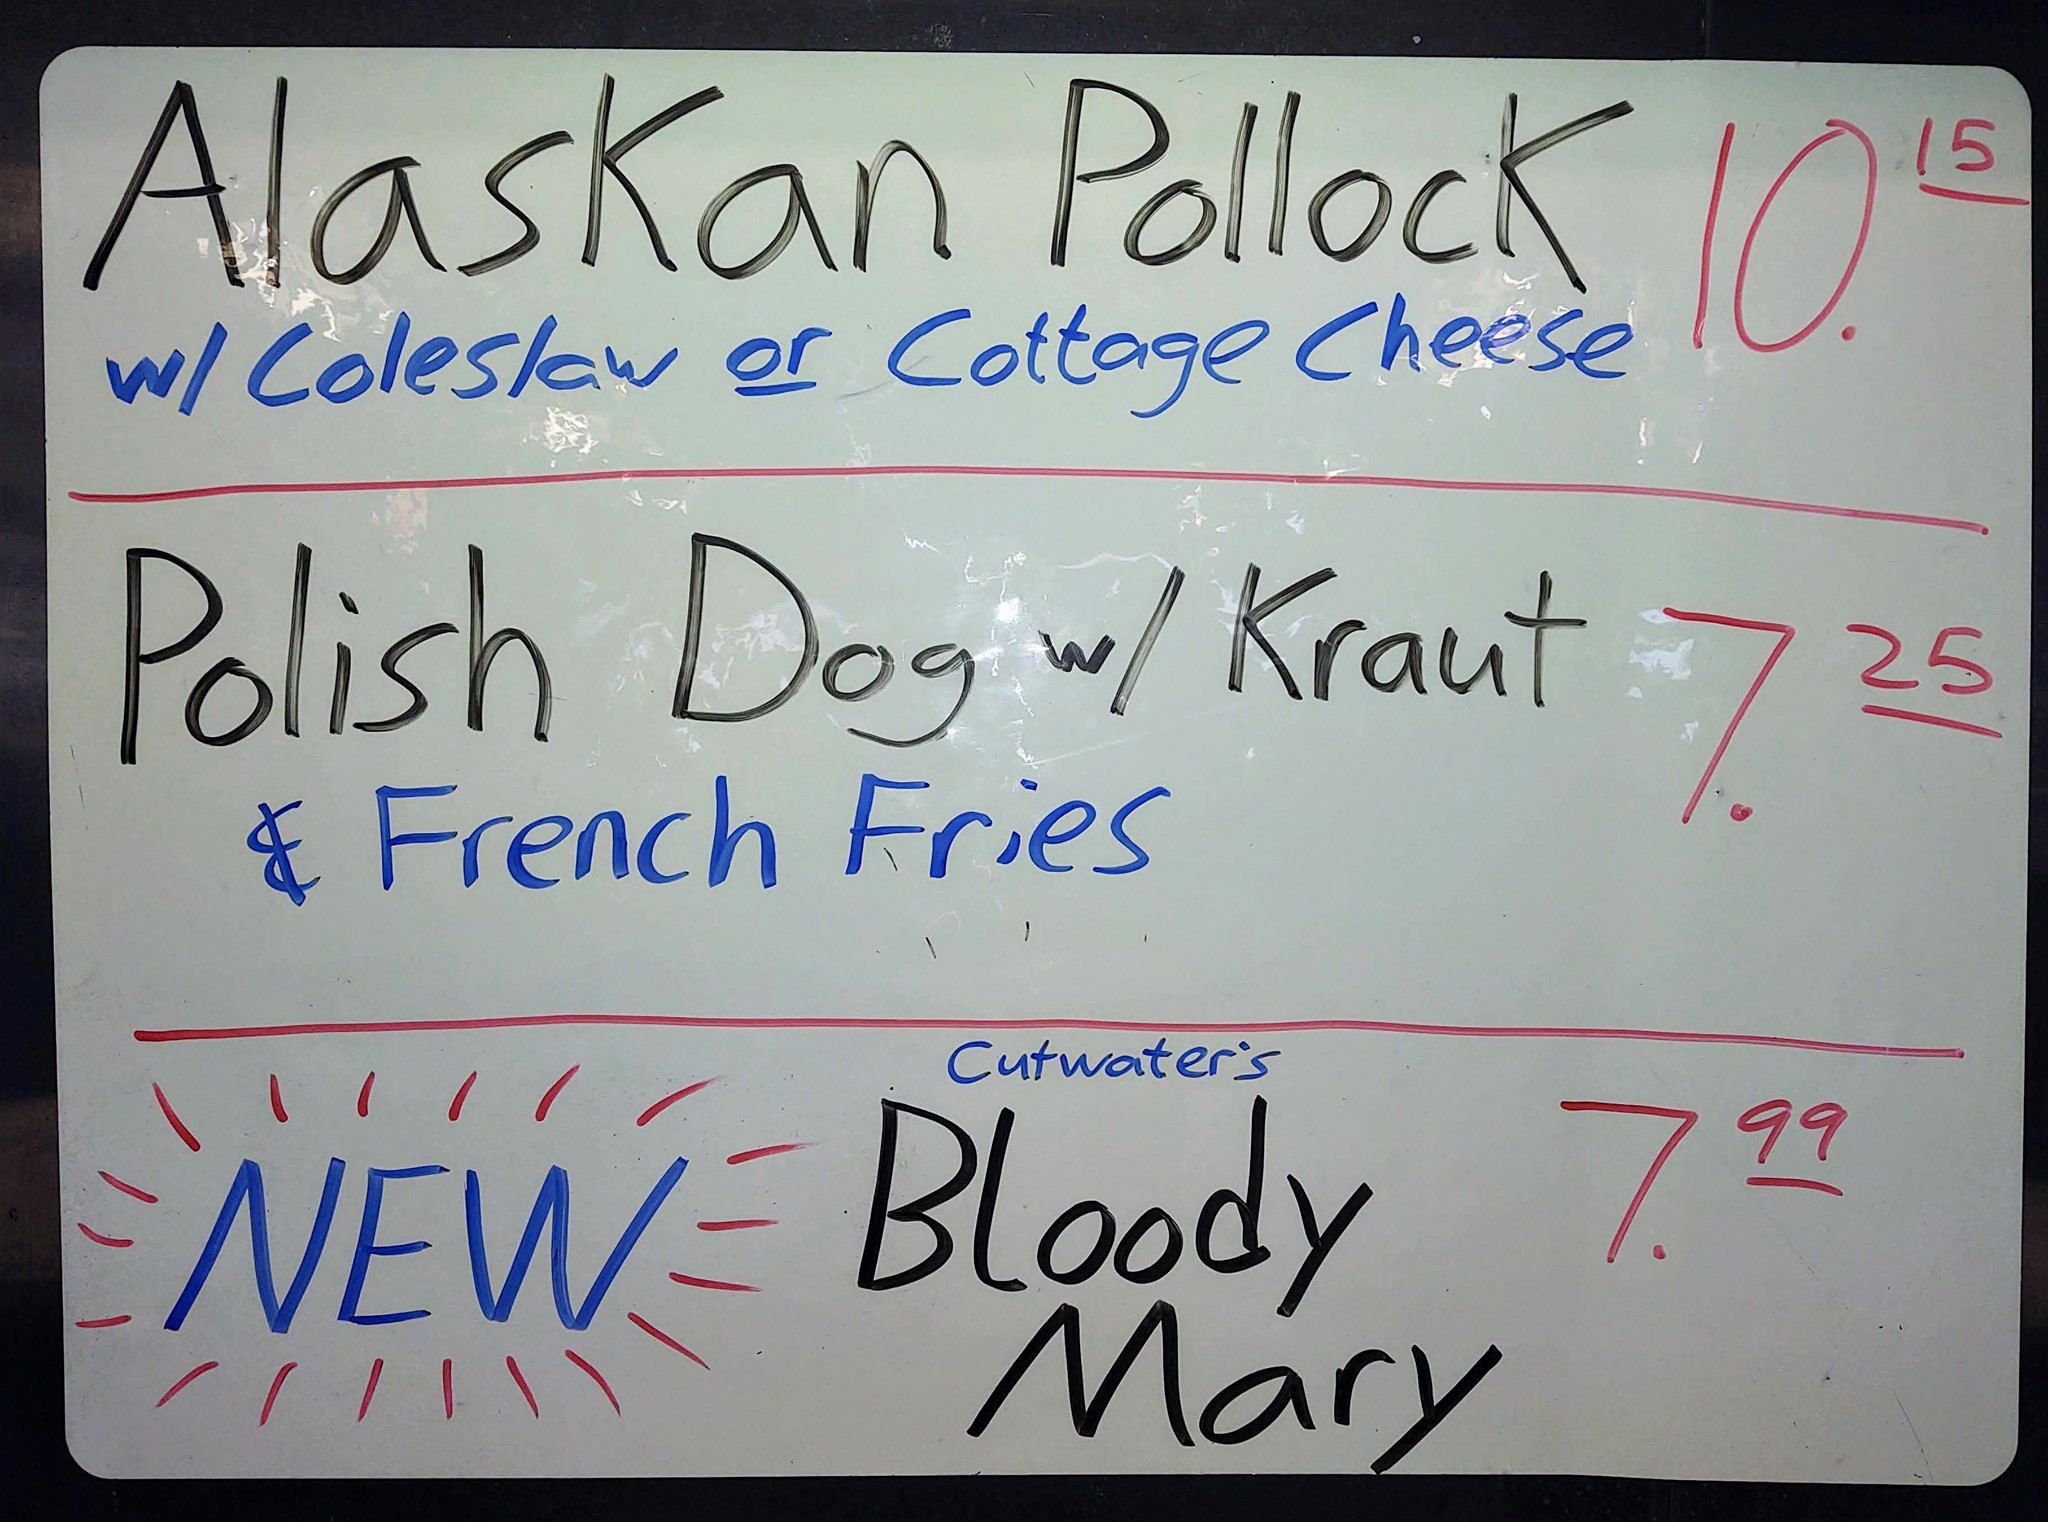 Alaskan Pollock 10.15
w/ Coleslaw or Cottage Cheese
Polish Dog w/ Kraut 7.25
& French Fries
Cutwater's
NEW Bloody 7.99
Mary